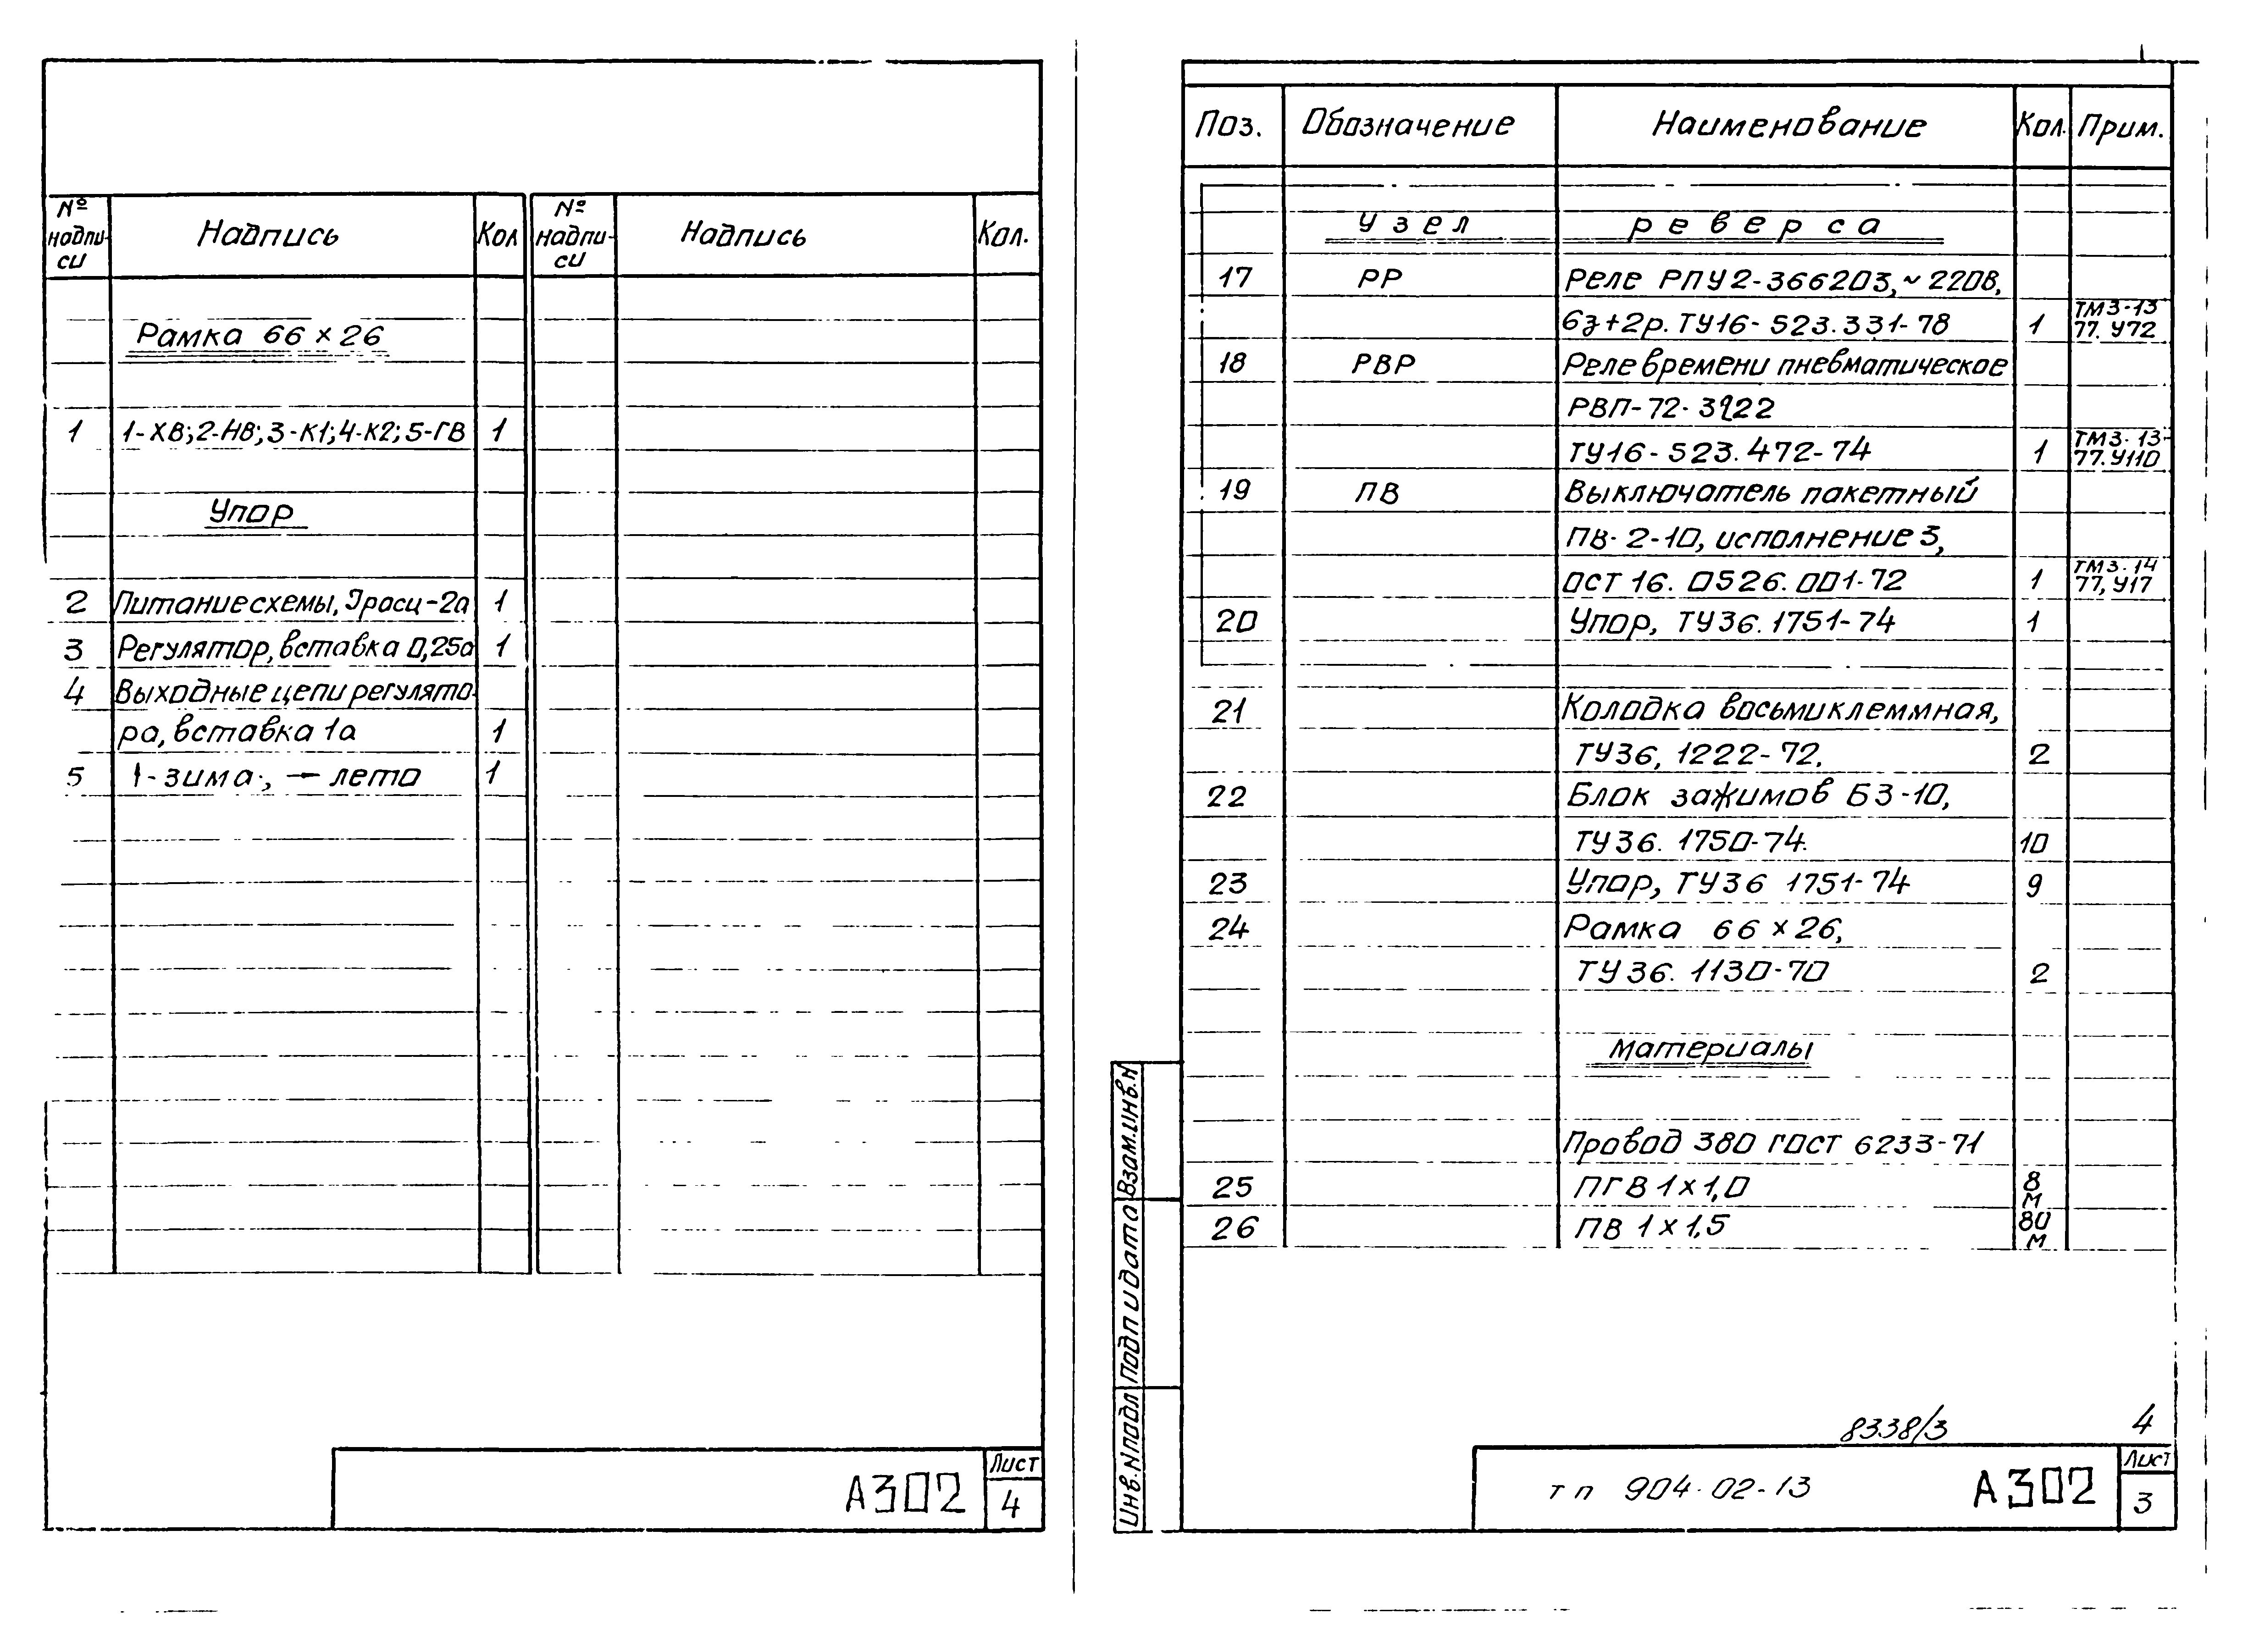 № надпи- си Надпись Кол № надпи- си Надпись Кол.
Рамка 66 × 26
1 1-ХВ; 2-НВ; 3-К1; 4-К2; 5-ГВ 1
Упор
2 Питание схемы, Iрасц-2а 1
3 Регулятор, вставка 0,25а 1
4 Выходные цепи регулято-
ра, вставка 1а 1
5 ↑-зима; → лето 1
А302
Лист
4
Поз. Обозначение Наименование Кол. Прим.
Узел реверса
17 РР Реле РПУ2-366203, ~220В,
6з+2р. ТУ16-523.331-78 1 ТМ3-13
77. У72
18 РВР Реле времени пневматическое
РВП-72-3222
ТУ16-523.472-74 1 ТМ3-13-
77. У110
19 ПВ Выключатель пакетный
ПВ-2-10, исполнение 3,
ОСТ 16. 0526.001-72 1 ТМ3-14
77, У17
20 Упор, ТУ36.1751-74 1
21 Колодка восьмиклеммная,
ТУ36, 1222-72. 2
22 Блок зажимов БЗ-10,
ТУ36. 1750-74. 10
23 Упор, ТУ36 1751-74 9
24 Рамка 66 × 26,
ТУ36. 1130-70 2
Материалы
Провод 380 ГОСТ 6233-71
25 ПГВ 1×1,0 8 м
26 ПВ 1×1,5 80 м
Взам.инв.N
Подп и дата
Инв.N подл
8338/3 4
тп 904-02-13 А302
Лист
3